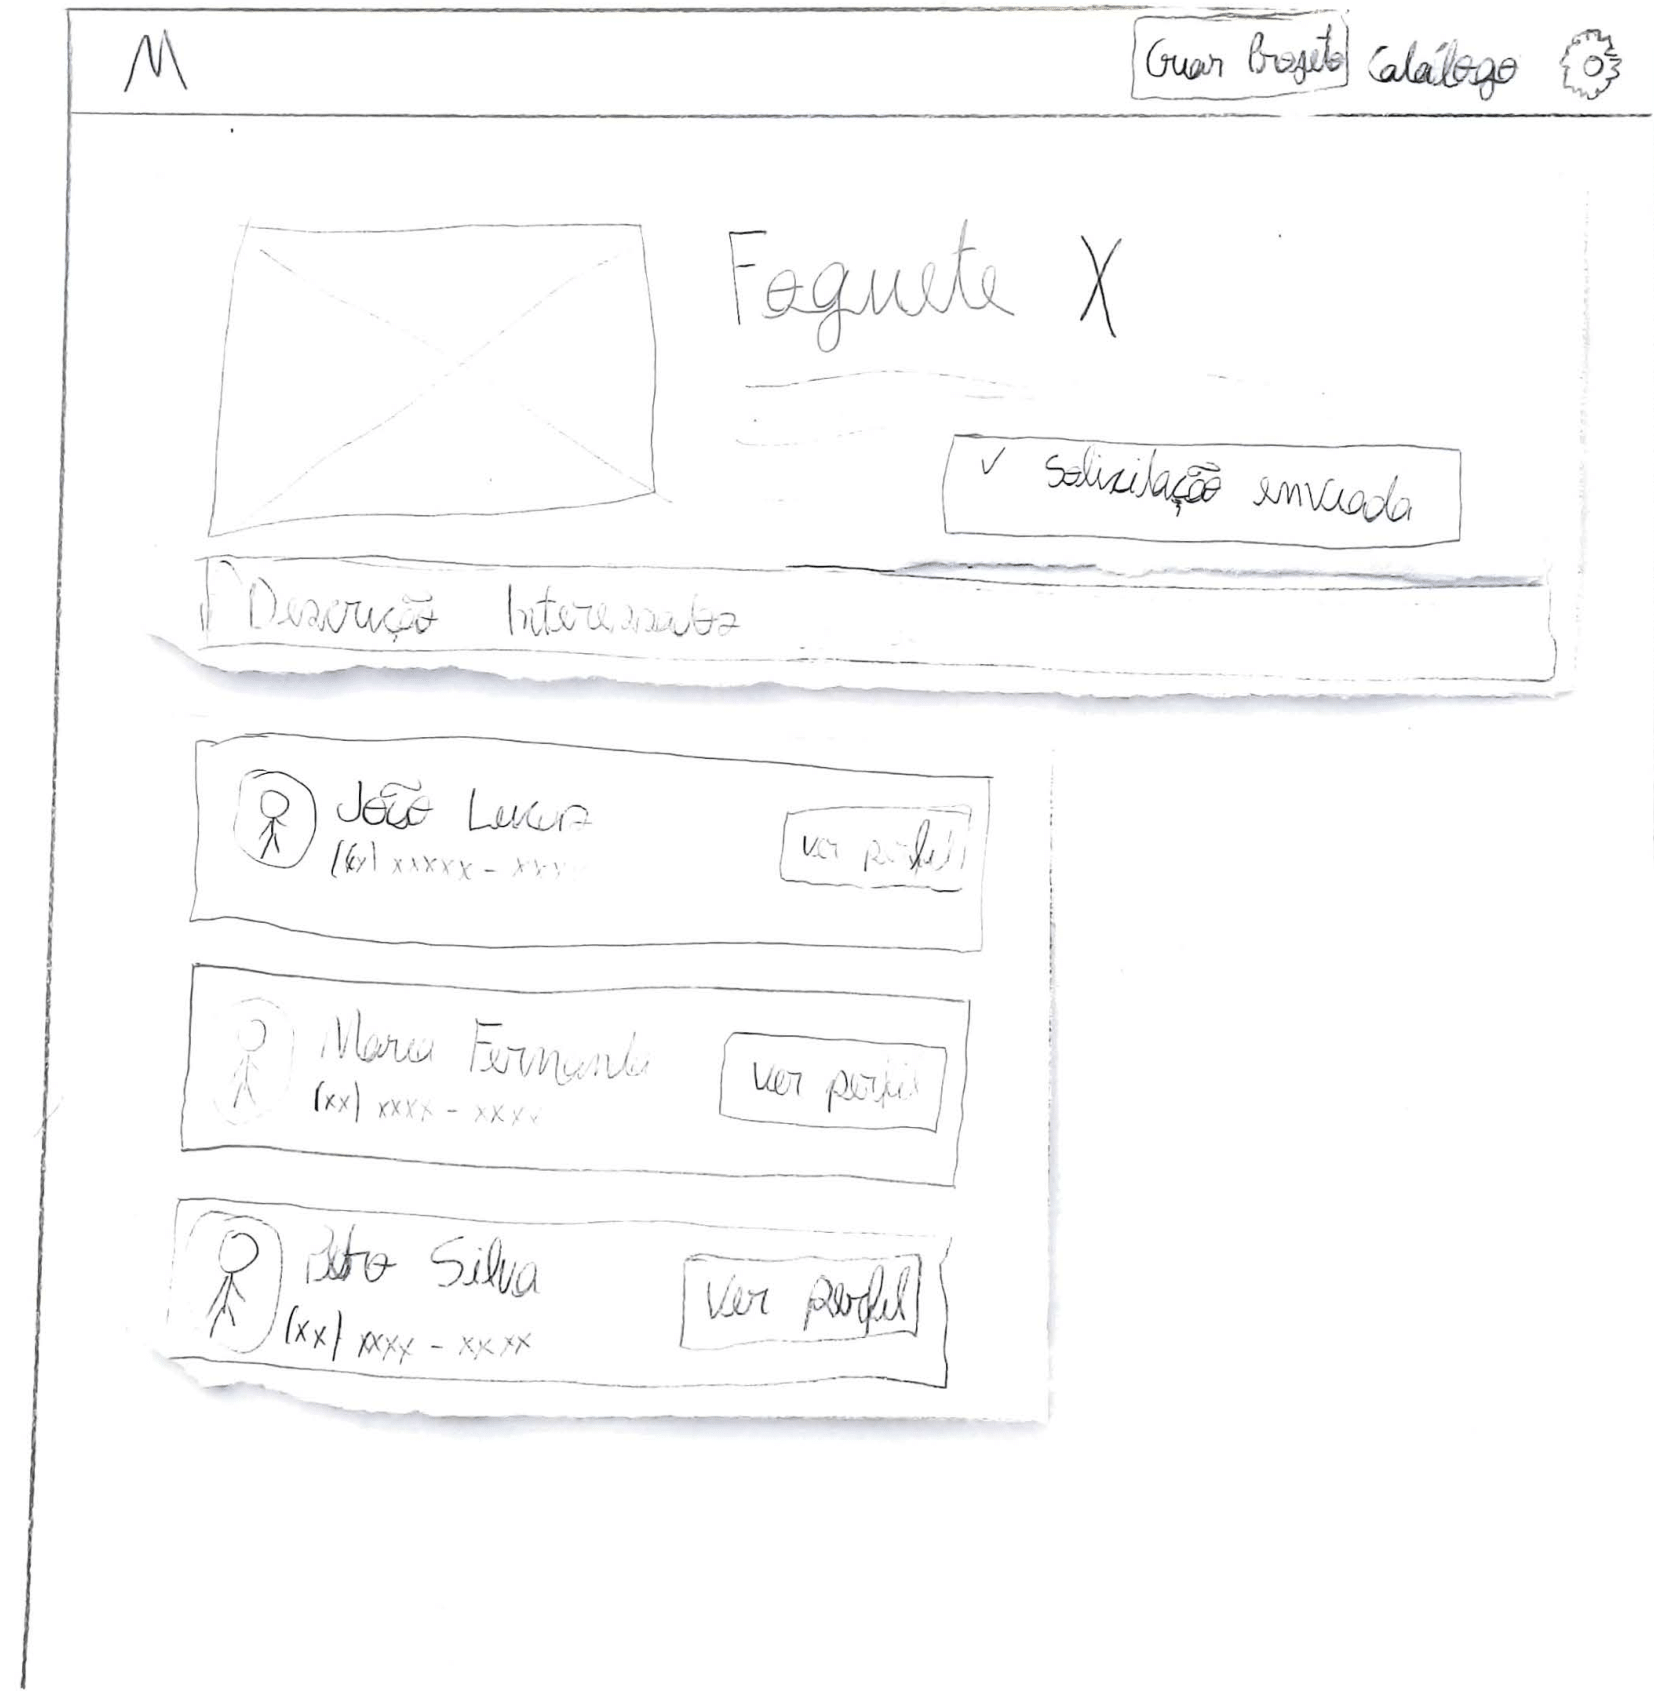 M
Criar Projeto Catálogo
Foguete X
✓ Solicitação enviada
Descrição Interessados
João Lucas
(xx) xxxxx - xxxx
ver perfil
Maria Fernanda
(xx) xxxx - xxxx
ver perfil
Beto Silva
(xx) xxxx - xxxx
ver perfil